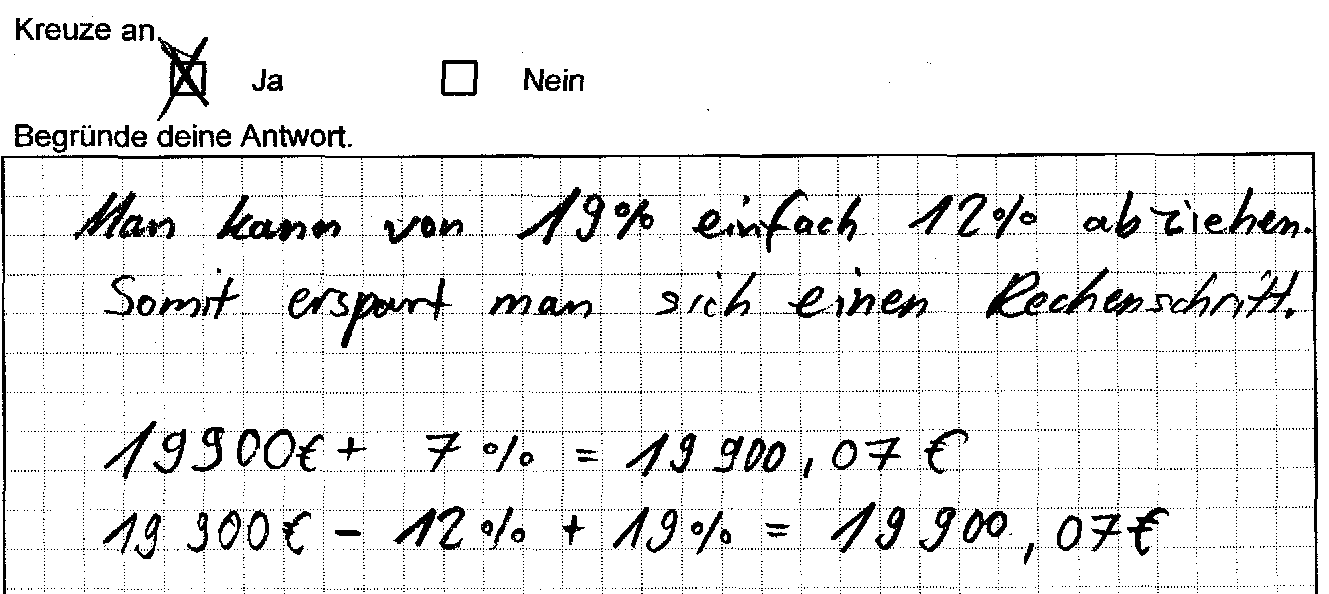 Kreuze an.
Ja Nein
Begründe deine Antwort.
Man kann von 19% einfach 12% abziehen.
Somit erspart man sich einen Rechenschritt.
19900€ + 7% = 19 900,07 €
19 900€ - 12% + 19% = 19 900,07€